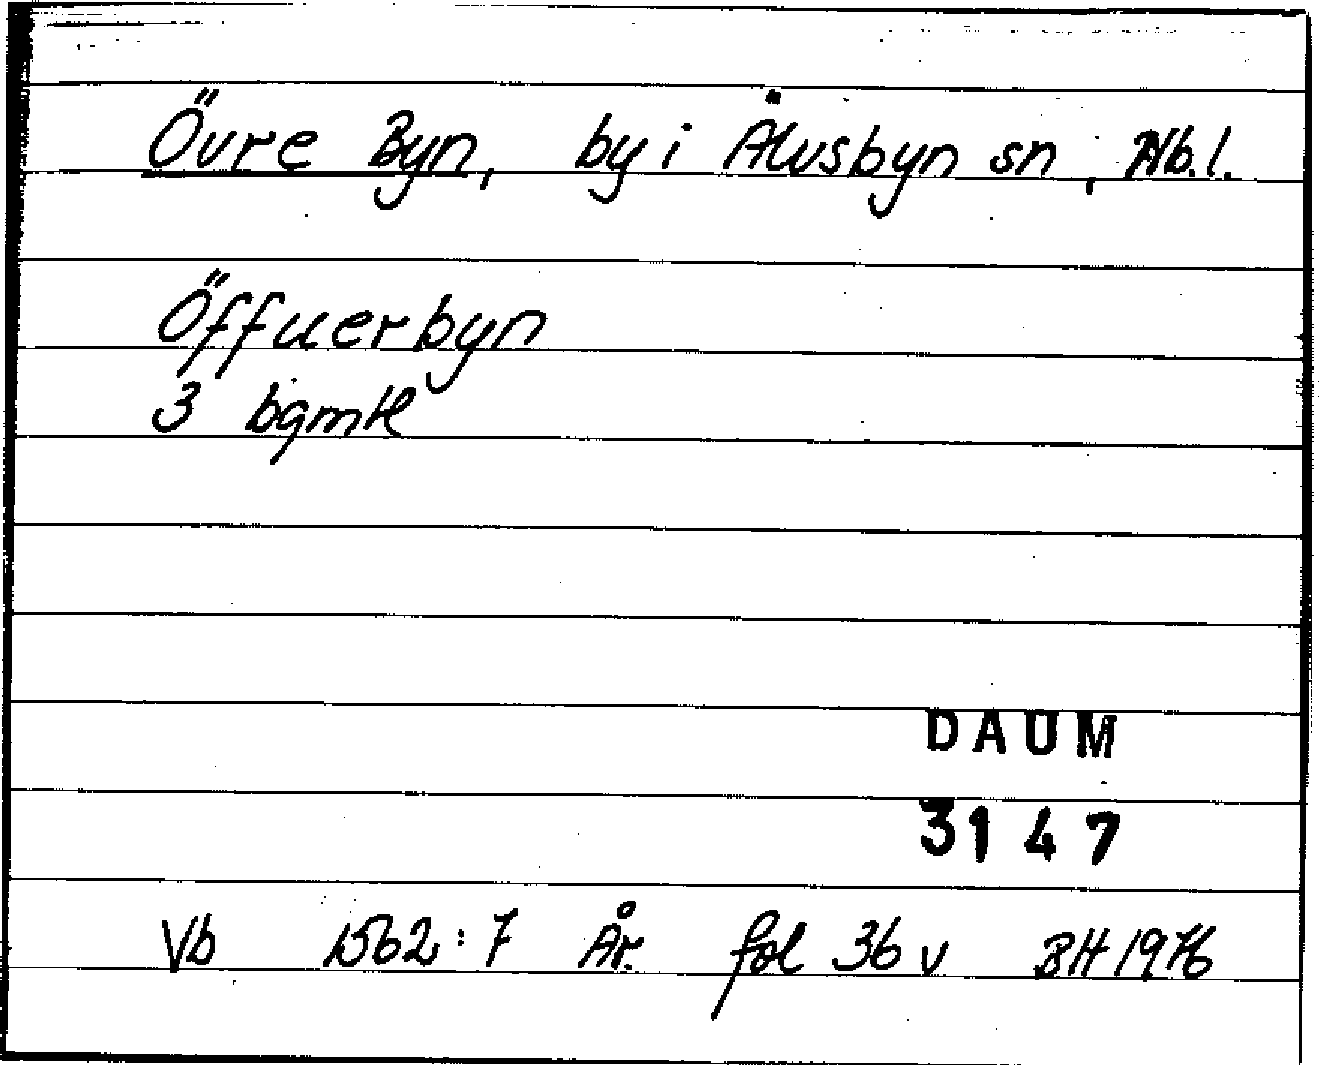 Övre Byn, by i Älvsbyn sn, Nb.l.
Öffuerbyn
3 bgmtl
DAUM
3147
Vb 1562:7 År. fol 36 v BH 1976